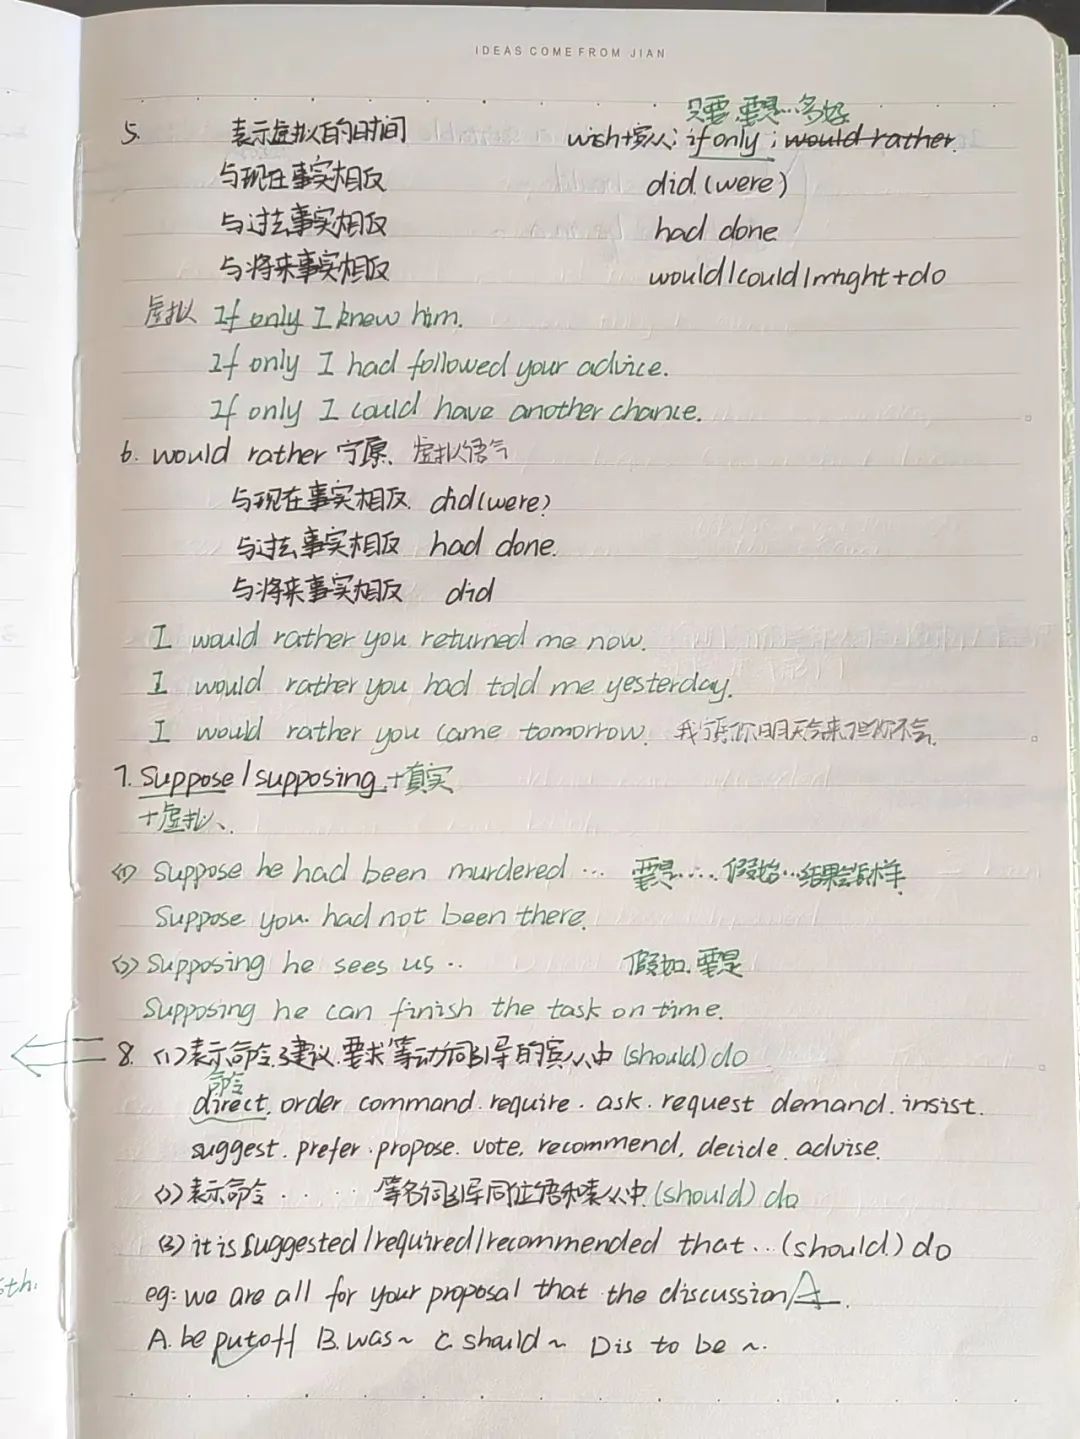 IDEAS COME FROM JIAN
只要,要是…多好
5. 表示虚拟的时间 wish+宾从; if only; would rather.
与现在事实相反 did (were)
与过去事实相反 had done
与将来事实相反 would/could/might+do
虚拟 If only I knew him.
If only I had followed your advice.
If only I could have another chance.
6. would rather 宁愿、虚拟语气
与现在事实相反. did(were)
与过去事实相反 had done.
与将来事实相反 did
I would rather you returned me now.
I would rather you had told me yesterday.
I would rather you came tomorrow. 我 你明天 来但你不会.
7. Suppose / supposing +真实
+虚拟、
(1) Suppose he had been murdered … 要是…. 假如…结果会怎样.
Suppose you had not been there.
(2) Supposing he sees us ..
假如.要是
Supposing he can finish the task on time.
8. (1)表示命令.建议.要求等动词引导的宾从中 (should) do
命令
direct. order command. require. ask. request demand. insist.
suggest. prefer. propose. vote. recommend, decide. advise.
(2)表示命令..... 等名词引导同位语和表从中.(should) do
(3) it is suggested/required/recommended that… (should) do
6th.
eg: we are all for your proposal that the discussion A.
A. be put off B. was~ C should~ D is to be ~.